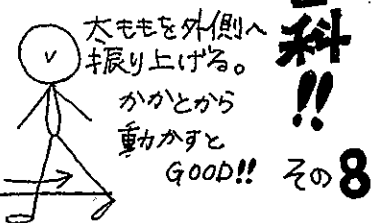 太ももを外側へ
振り上げる。
かかとから
動かすと
GOOD!!
科!!
その8